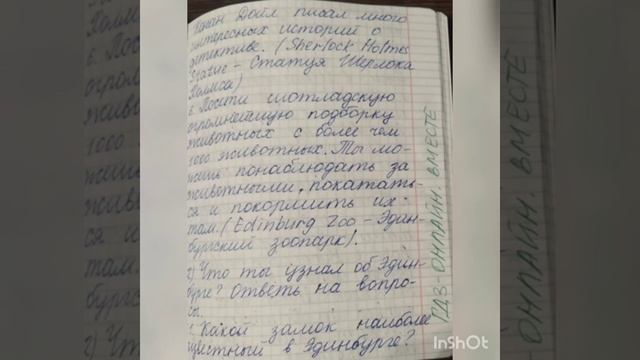 Конан Дойл писал много
интересных историй о
детективе. (Sherlock Holmes
Statue – Статуя Шерлока
Холмса)
6. Посети шотладскую
огромнейшую подборку
животных с более чем
1000 животных. Ты мо-
жешь понаблюдать за
животными, покатать-
ся и покормить их
там. (Edinburg Zoo – Эдин-
бургский зоопарк).
2) Что ты узнал об Эдин-
бурге? Ответь на вопро-
сы.
1. Какой замок наиболее
известный в Эдинбурге?
ГДЗ-ОНЛАЙН. ВМЕСТЕ
InShOt